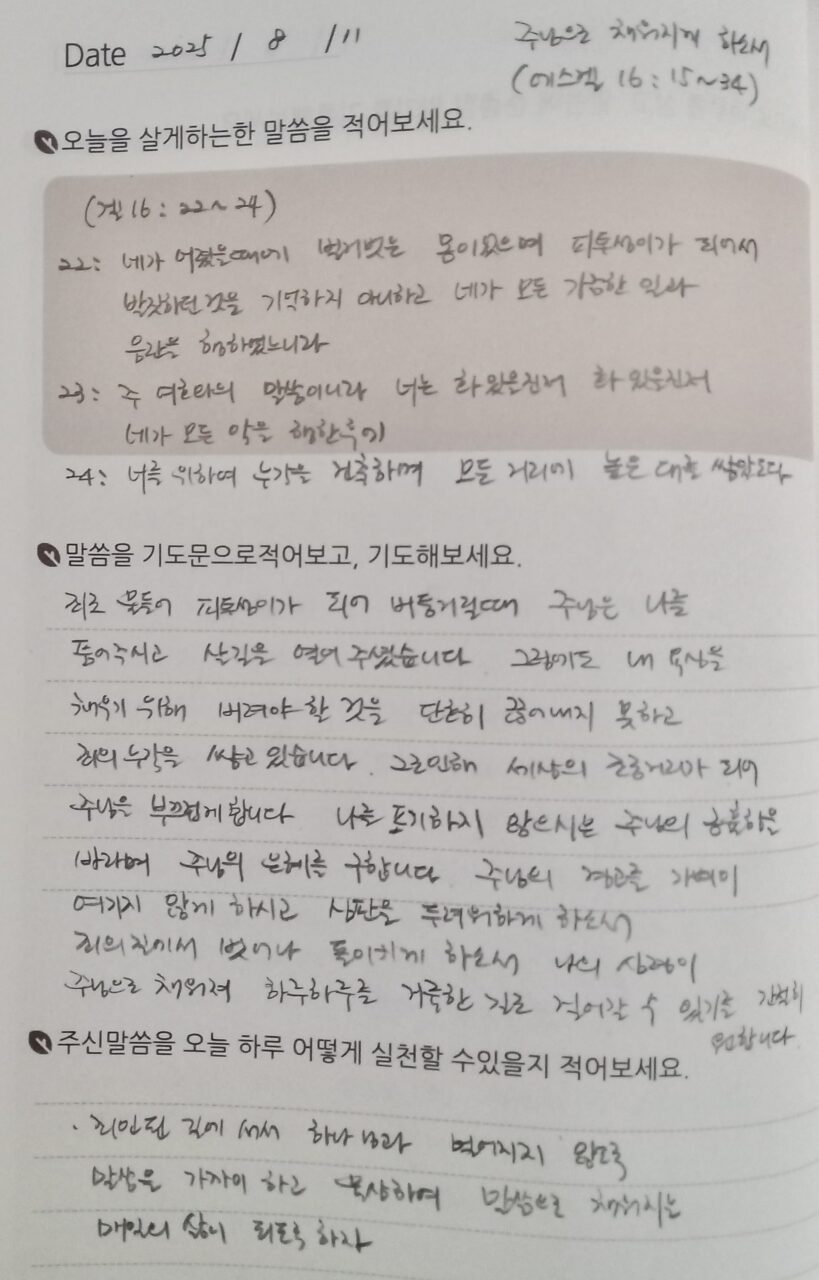 Date 2025 / 8 / 11
주님으로 채워지게 하소서
(에스겔 16 : 15~34)
오늘을 살게하는한 말씀을 적어보세요.
(겔 16 : 22~24)
22: 네가 어렸을때에 벌거벗은 몸이었으며 피투성이가 되어서
발짓하던것을 기억하지 아니하고 네가 모든 가증한 일과
음란을 행하였느니라
23: 주 여호와의 말씀이니라 너는 화 있을진저 화 있을진저
네가 모든 악을 행한후에
24: 너를 위하여 누각을 건축하며 모든 거리에 높은 대를 쌓았도다
말씀을 기도문으로적어보고, 기도해보세요.
죄로 물들어 피투성이가 되어 버둥거릴때 주님은 나를
품어주시고 살길을 열어 주셨습니다 그럼에도 내 욕심을
채우기 위해 버려야 할 것을 단호히 끊어내지 못하고
죄의 누각을 쌓고 있습니다. 그로인해 세상의 조롱거리가 되어
주님을 부끄럽게 합니다 나를 포기하지 않으시는 주님의 긍휼하심을
바라며 주님의 은혜를 구합니다 주님의 경고를 가벼이
여기지 않게 하시고 심판을 두려워하게 하소서
죄의 길에서 벗어나 돌이키게 하소서 나의 심령이
주님으로 채워져 하루하루를 거룩한 길로 걸어갈 수 있기를 간절히
원합니다.
주신말씀을 오늘 하루 어떻게 실천할 수있을지 적어보세요.
· 죄악된 길에 서서 하나님과 멀어지지 않도록
말씀을 가까이 하고 묵상하여 말씀으로 채워지는
매일의 삶이 되도록 하자